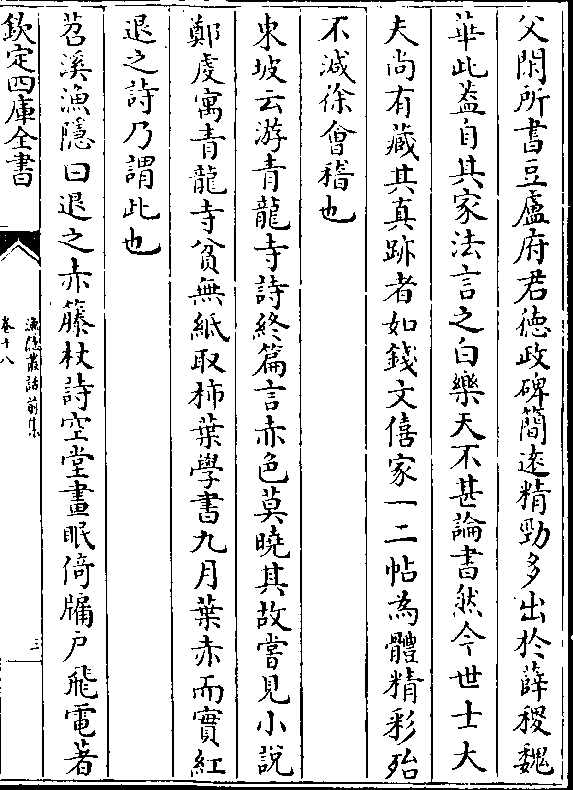 父閑所書豆盧府君徳政碑簡逺精勁多出於薛稷魏
華此葢自其家法言之白樂天不甚論書然今世士大
夫尚有藏其真跡者如錢文僖家一二帖為體精彩殆
不減徐會稽也
東坡云游青龍寺詩終篇言赤色莫曉其故嘗見小說
鄭虔寓青龍寺貧無紙取柿葉學書九月葉赤而實紅
退之詩乃謂此也
苕溪漁隱曰退之赤籐杖詩空堂晝眠倚牖戶飛電著
欽定四庫全書
漁隱叢話前集
卷十八
三